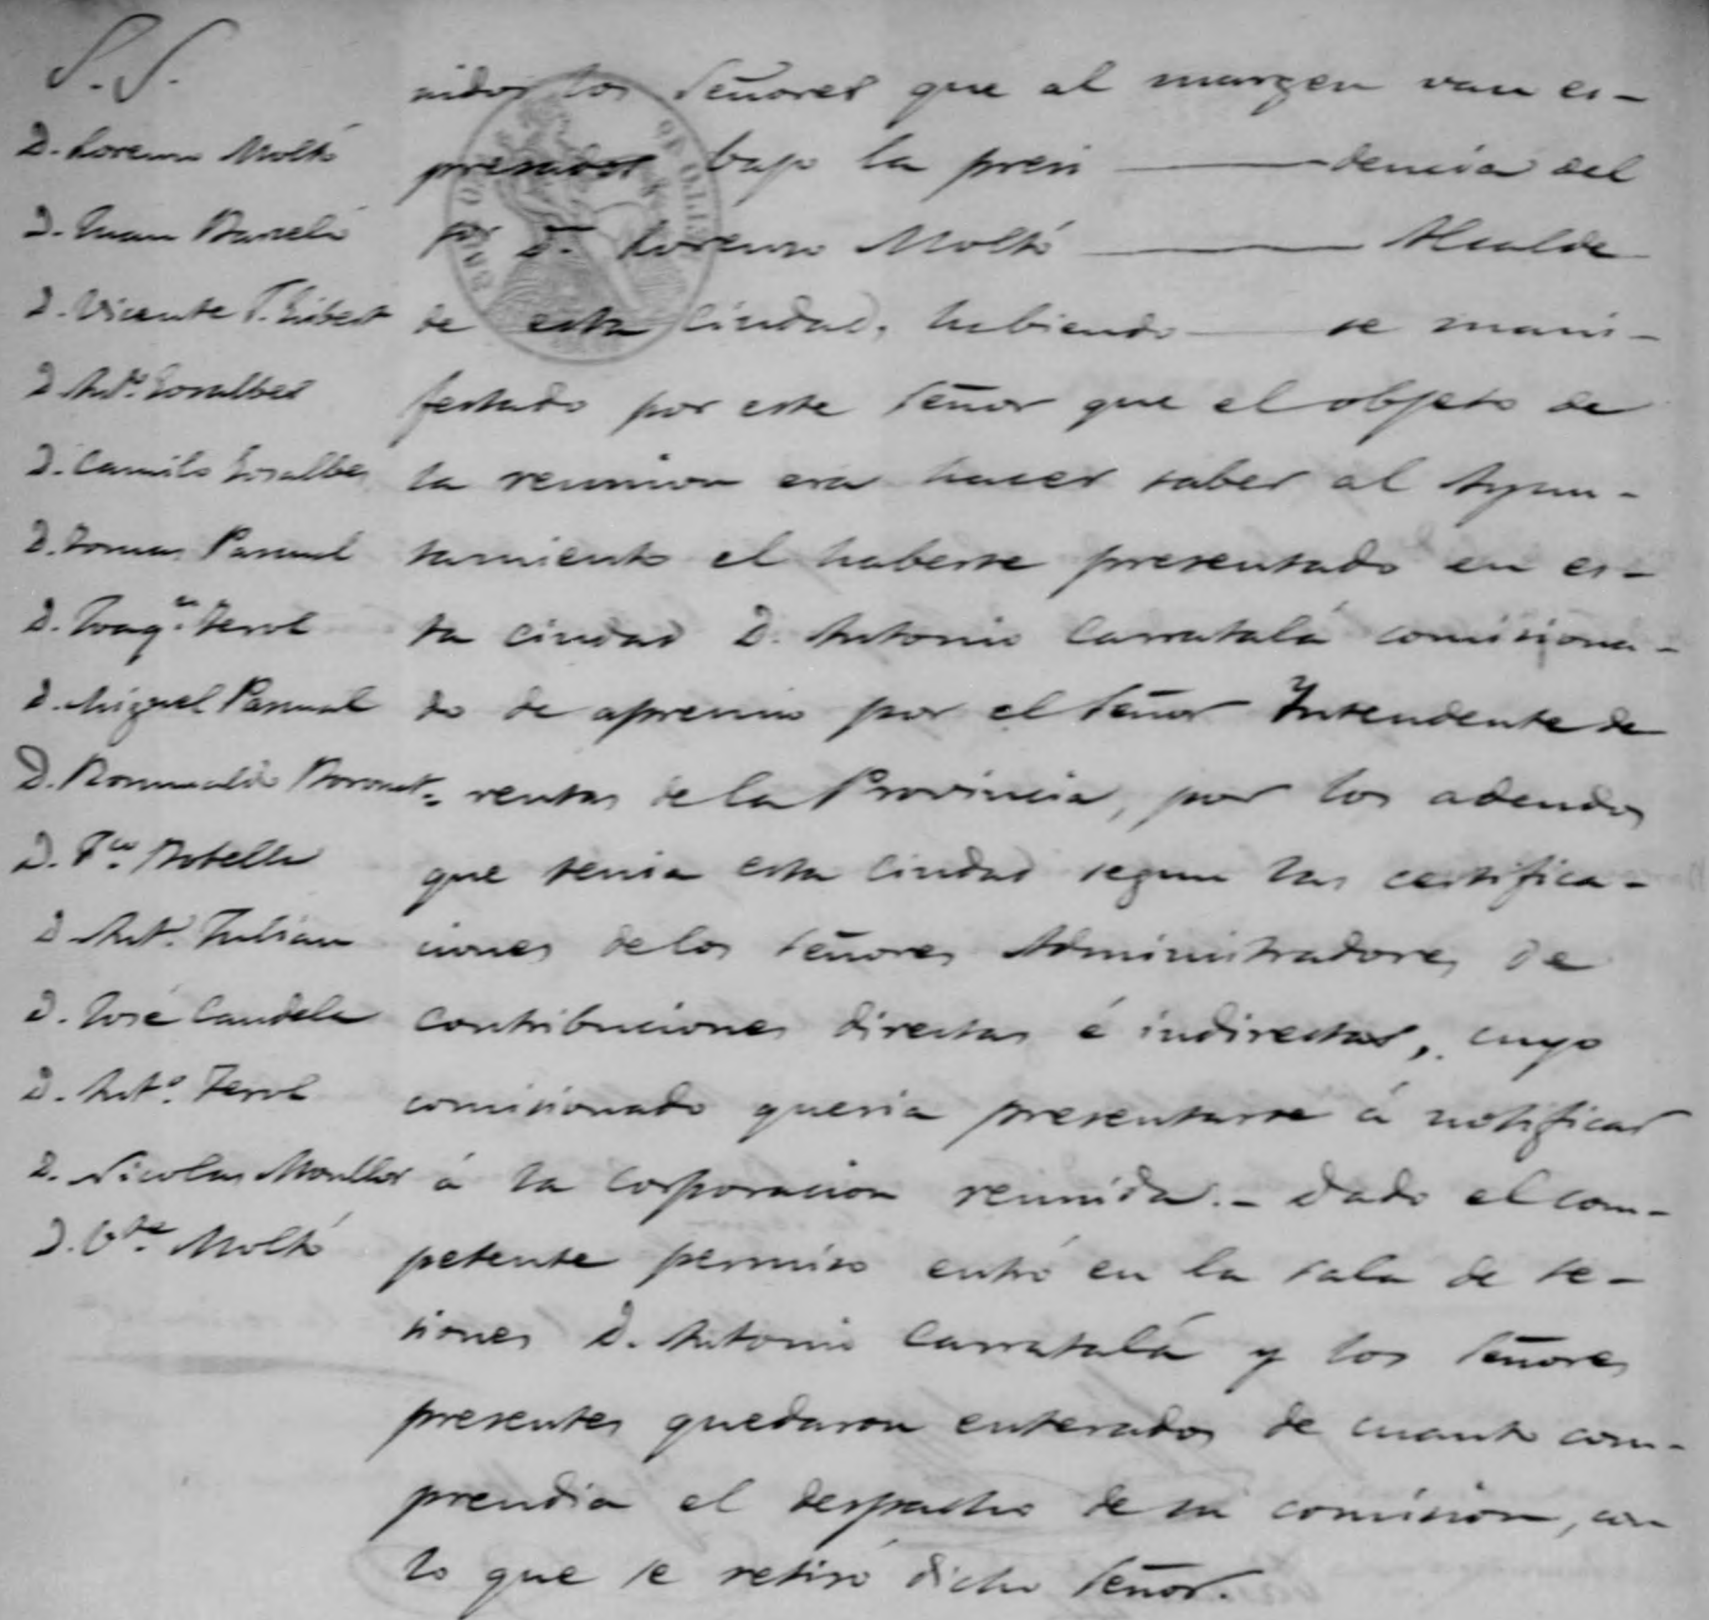 S.S.
D. Lorenzo Moltó
D. Juan Barceló
D. Vicente T. Gisbert
D. Ant.º Gosalbes
D. Camilo Gosalbes
D. Tomas Pascual
D. Joaq.n Terol
D. Miguel Pascual
D. Romualdo Boronat
D. F.co Botella
D. Ant.º Julian
D. José Candela
D. Ant.º Terol
D. Nicolas Moullor
D. V.te Moltó
nidos los Señores que al margen van es-
presados bajo la presi — dencia del
por D.n Lorenzo Moltó — Alcalde
de esta Ciudad, habiendo — se mani-
festado por este Señor que el objeto de
la reunion era hacer saber al Ayun-
tamiento el haberse presentado en es-
ta ciudad D. Antonio Carratalá comisiona-
do de apremio por el Señor Intendente de
rentas de la Provincia, por los adeudos
que tenia esta Ciudad segun las certifica-
ciones de los Señores Administradores de
contribuciones directas é indirectas, cuyo
comisionado queria presentarse á notificar
á la Corporacion reunida. - Dado el com-
petente permiso entró en la sala de se-
siones D. Antonio Carratalá y los Señores
presentes quedaron enterados de cuanto com-
prendia el despacho de su comision, con
lo que se retiró dicho Señor.